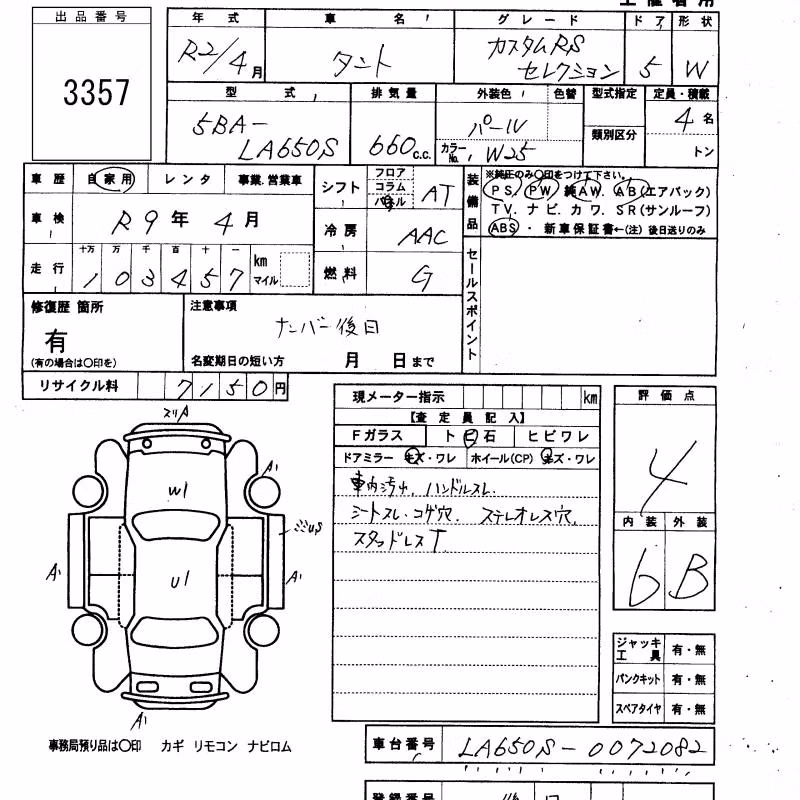 出品番号
3357
年式
R2/4月
車名
タント
グレード
カスタムRS
セレクション
ドア
5
形状
W
型式
5BA-
LA650S
排気量
660c.c.
外装色
パール
色替
カラーNo.
W25
型式指定
類別区分
定員・積載
4名
トン
車歴
自家用 レンタ 事業.営業車
車検
R9年4月
走行
十万 万 千 百 十 一
103457
km
マイル
シフト
フロア
コラム
パネル
AT
冷房
AAC
燃料
G
装備品
※純正のみ〇印をつけて下さい。
PS PW 純AW. AB(エアバック)
TV. ナビ. カワ. SR(サンルーフ)
ABS ・ 新車保証書←(注) 後日送りのみ
セールスポイント
修復歴 箇所
有
(有の場合は〇印を)
注意事項
ナンバー後日
名変期日の短い方 月 日まで
リサイクル料
7150円
現メーター指示 km
【査定員記入】
Fガラス
トビ石
ヒビワレ
ドアミラー キズ・ワレ
ホイール(CP) キズ・ワレ
車内汚れ. ハンドルスレ.
シートスレ・コゲ穴. ステレオレス穴.
スタッドレスT
評価点
4
内装
6
外装
B
スリA
A'
W1
U1
A'
A'
A'
ジャッキ
工具
有・無
パンクキット
有・無
スペアタイヤ
有・無
事務局預り品は〇印 カギ リモコン ナビロム
車台番号
LA650S-0072082
登録番号